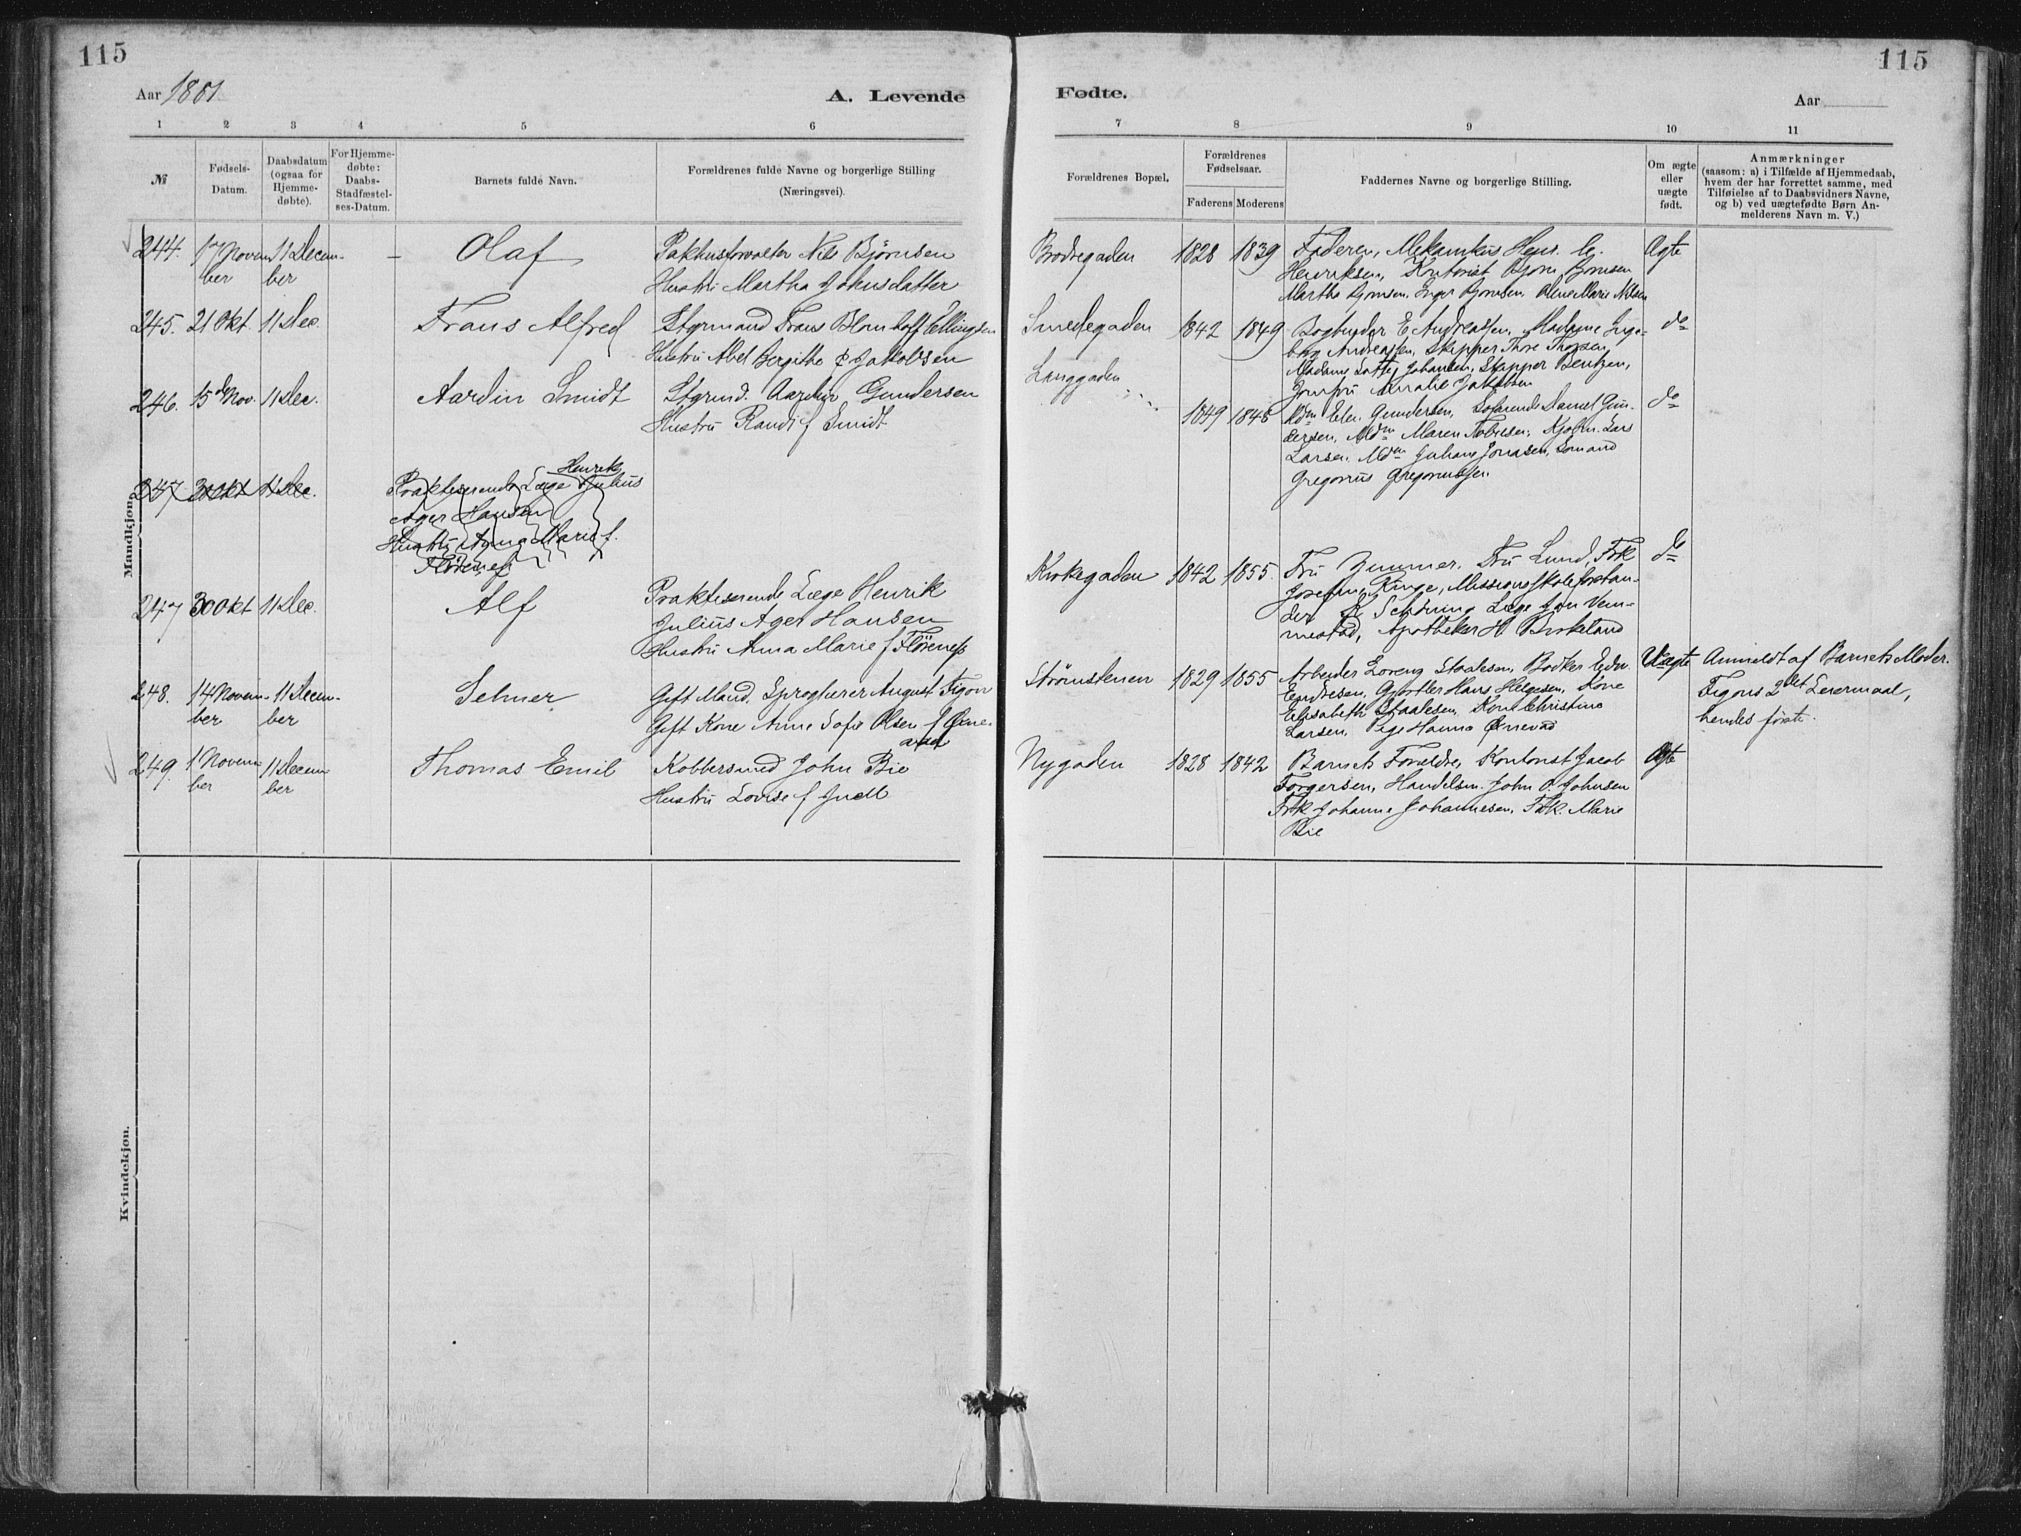 115
115
Aar 1881.
A. Levende
Fødte.
Aar
1 2 3 4 5 6
7 8 9 10 11
№
Fødsels-
Datum.
Daabsdatum
(ogsaa for
Hjemme-
døbte).
For Hjemme-
døbte:
Daabs-
Stadfæstel-
ses-Datum.
Barnets fulde Navn.
Forældrenes fulde Navne og borgerlige Stilling
(Næringsvei).
Forældrenes Bopæl.
Forældrenes
Fødselsaar.
Faderens Moderens
Faddernes Navne og borgerlige Stilling.
Om ægte
eller
uægte
født.
Anmærkninger
(saasom: a) i Tilfælde af Hjemmedaab,
hvem der har forrettet samme, med
Tilføielse af to Daabsvidners Navne,
og b) ved uægtefødte Børn An-
melderens Navn m. V.)
Mandkjøn.
Kvindekjøn.
244. 17 Novem-
ber
11 Decem-
ber
–
Olaf
Pakhusforvalter Nils Bjørnsen
Hustru Martha Johnsdatter
Bredregaden 1828 1839
Faderen, Mekanikus Henr. C.
Henriksen, Kontorist Bjørn Bjørnsen
Martha Bjørnsen, Inger Bjørnsen, Oline Marie Nilsen
Ægte
245. 21 Okt. 11 Dec.
Frans Alfred
Styrmand Frans Blomhoff Ellingsen
Hustru Abel Bergithe f Jakobsen
Smedegaden 1842 1849
Bogbinder E Andreassen, Madame Inge-
borg Andreassen, Skipper Thore Thorsen,
Madam Lotte Johansen, Skipper Bentzen,
Jomfru Amalie Jakobsen
do
246. 15 Nov. 11 Dec.
Aardin Smidt
Styrmd. Aardin Gundersen
Hustru Randi f Smidt
Langgaden
1849 1848
Mdm Elen Gundersen, Søfarende Daniel Gun-
dersen, Mdm Maren Tobiesen, Kjøbm. Lars
Larsen, Mdm Juliane Jonassen, Sømand
Gregorius Gregoriussen
do
247 30 Okt 11 Dec.
Praktiserende Læge Henrik Julius
Ager Hansen
Hustru Anna Marie f.
Flöreness
247 30 Okt 11 Dec.
Alf
Praktiserende Læge Henrik
Julius Ager Hansen
Hustru Anna Marie f Flöreness
Kirkegaden 1842 1855.
Fru Zimmer, Fru Lund, Frk
Josefine Ringe, Missionsskoleforstan-
der Schøning, Læge Vem-
mestad, Apotheker H Birkeland
do
248. 14 Novem-
ber
11 Decem-
ber
Selmer
Gift Mand, Sproglærer August Figon
Gift Kone Anne Sofie Olsen f Øene-
vad
Strømstenen 1829 1855
Arbeider Lorens Staalesen, Bødker Edv.
Endresen, Gjørtler Hans Helgesen, Kone
Elisabeth Staalesen, Kone Christine
Larsen, Pige Hanna Ønevad
Uægte
Anmeldt af Barnets Moder.
Figons 2det Leiermaal,
hendes første.
249. 1 Novem-
ber
11 Decem-
ber
Thomas Emil
Kobbersmed John Bie
Hustru Lovise f Juell
Nygaden 1828 1842
Barnets Forældre, Kontorist Jacob
Torgersen, Handelsm. John O. Johnsen
Frk Johanne Johannesen, Frk. Marie
Bie
Ægte